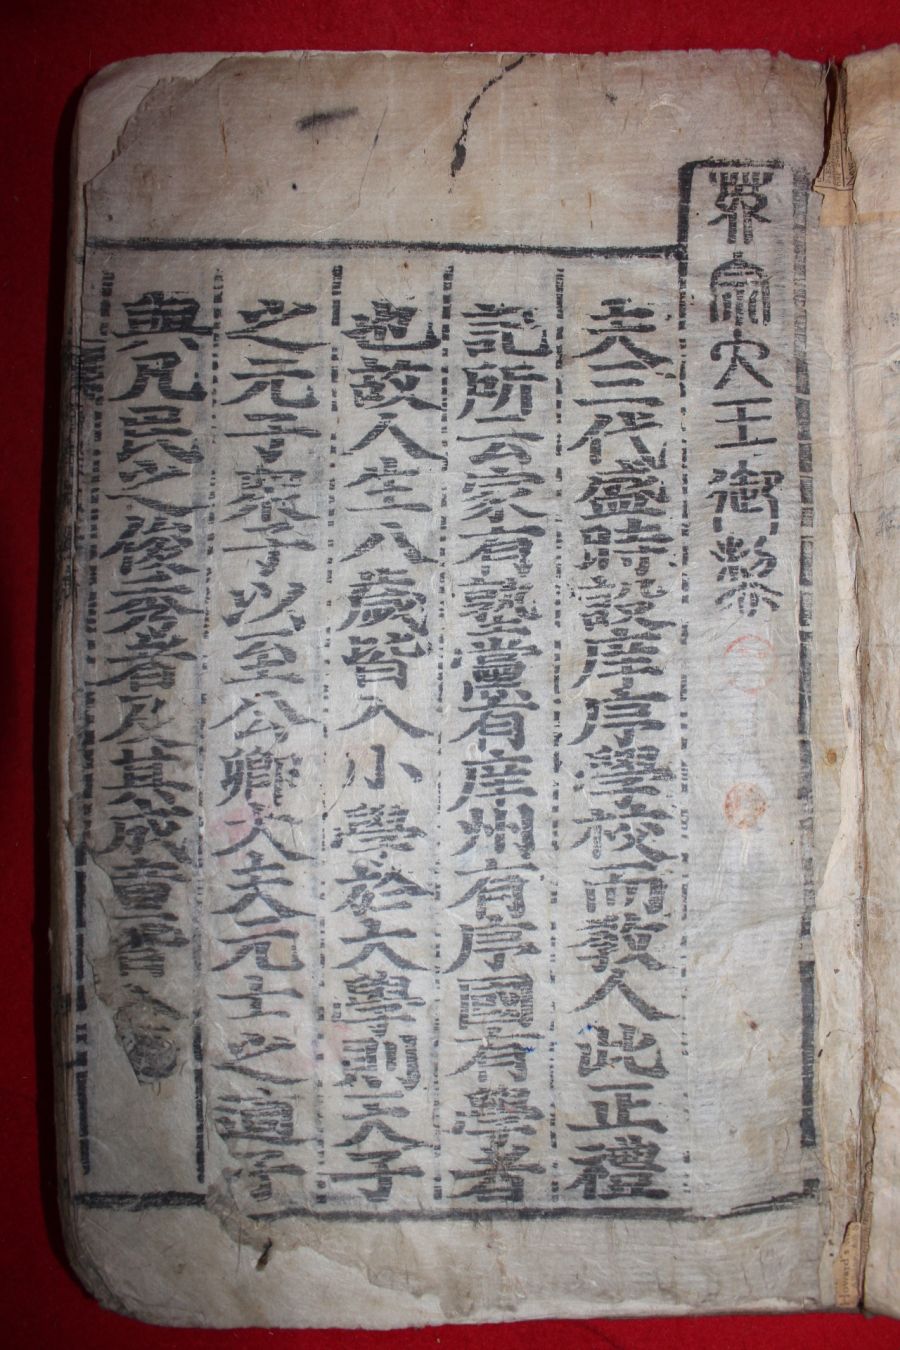 英宗大王御製
夫三代盛時設庠序學校而敎人此正禮
記所云家有塾黨有庠州有序國有學者
也故人生八歲皆入小學於大學則天子
之元子衆子以至公卿大夫元士之適子
與凡民之俊秀者及其成童皆